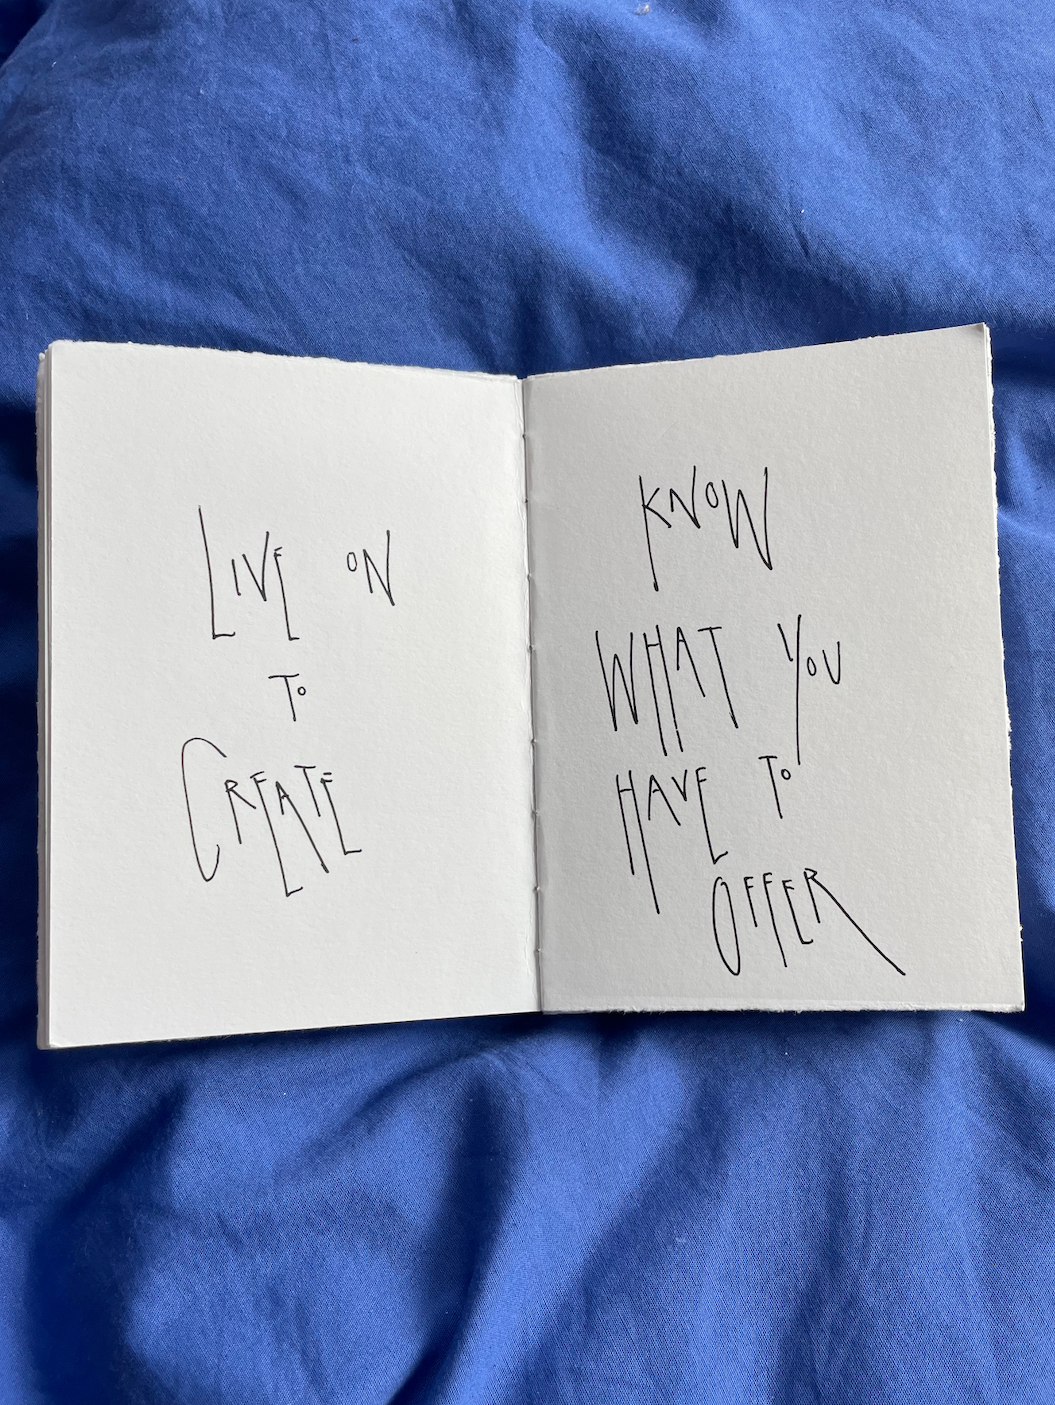 LIVE ON
TO
CREATE
KNOW
WHAT YOU
HAVE TO
OFFER